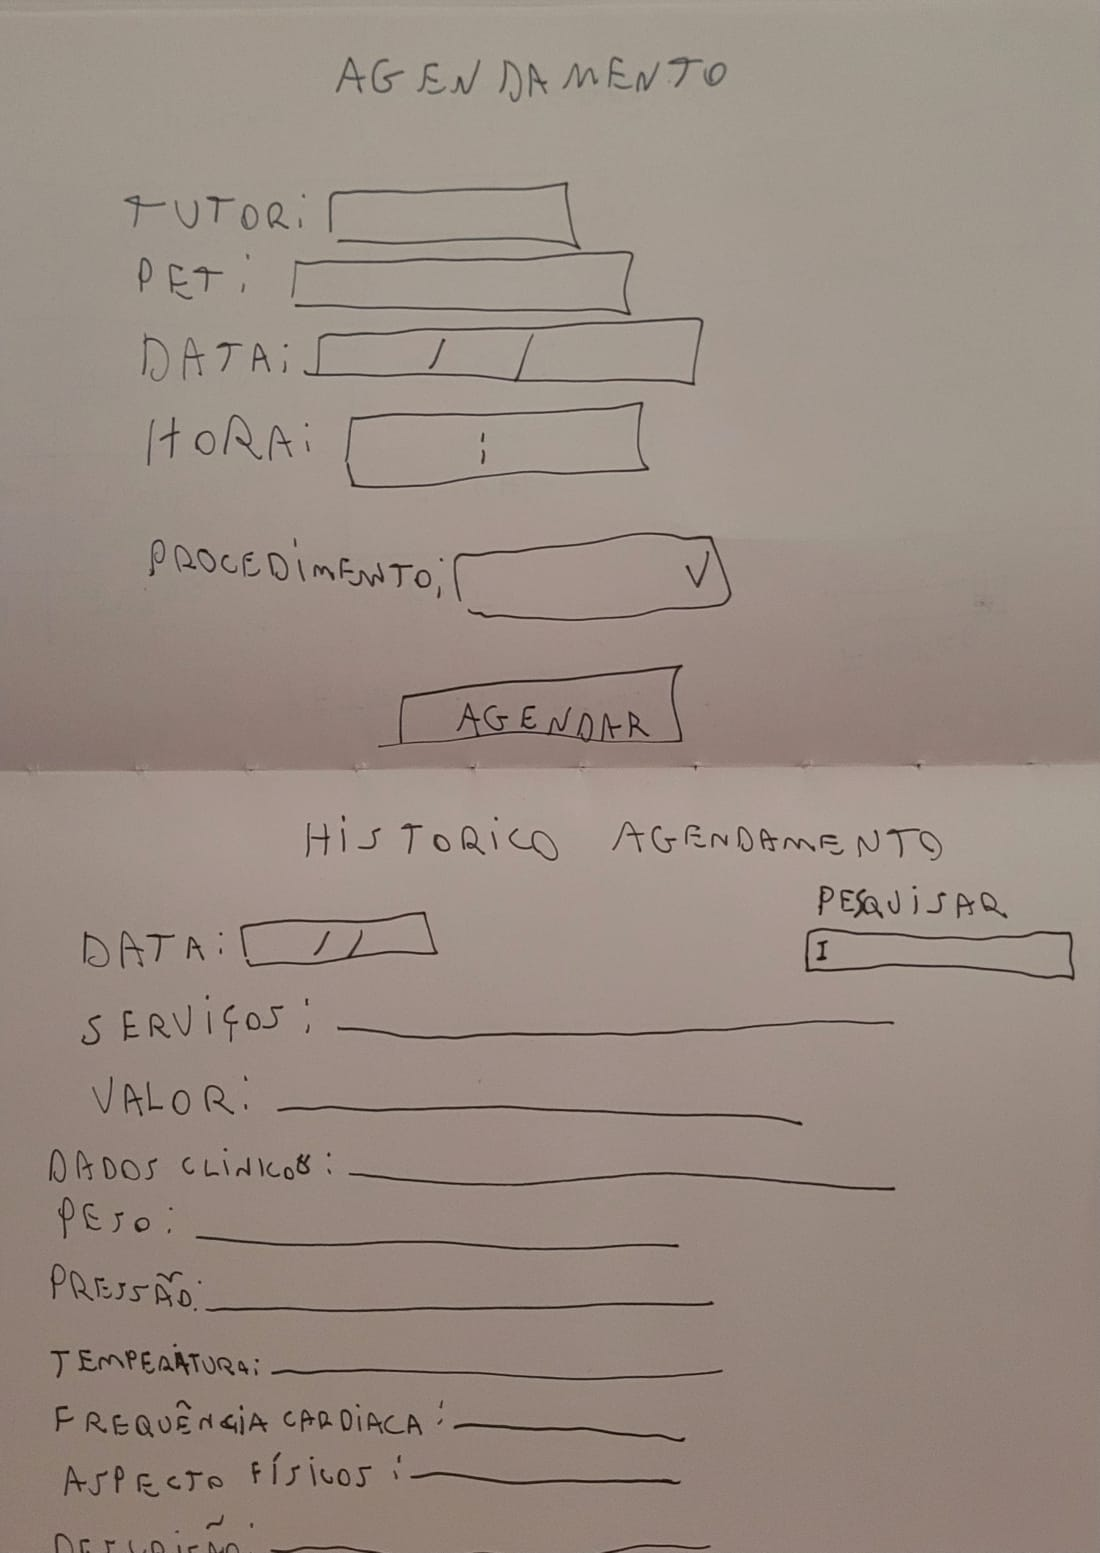 AGENDAMENTO
TUTOR:
PET:
DATA: / /
HORA: :
PROCEDIMENTO:
AGENDAR
HISTORICO AGENDAMENTO
PESQUISAR
DATA: / /
SERVIÇOS:
VALOR:
DADOS CLINICOS:
PESO:
PRESSÃO:
TEMPERATURA:
FREQUÊNCIA CARDIACA:
ASPECTO FÍSICOS: